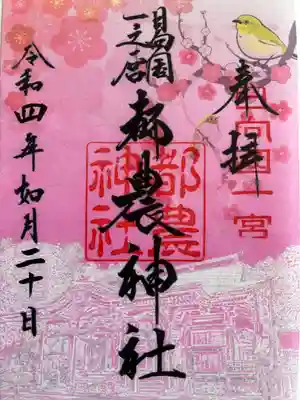 奉拝
一宮
日向国
一之宮
都農神社
都農
神社
令和四年如月二十日